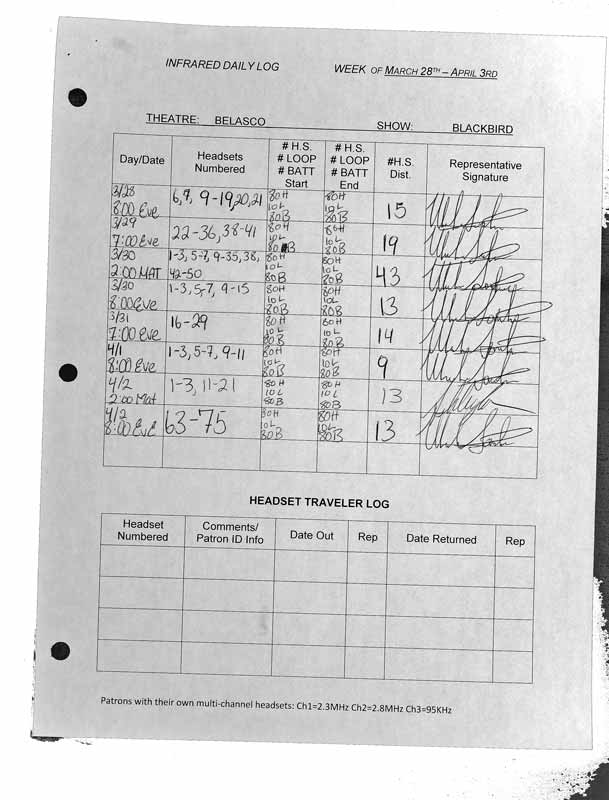 INFRARED DAILY LOG WEEK OF MARCH 28TH – APRIL 3RD
THEATRE: BELASCO SHOW: BLACKBIRD
Day/Date Headsets Numbered # H.S. # LOOP # BATT Start # H.S. # LOOP # BATT End #H.S. Dist. Representative Signature
3/28 8:00 Eve 6,7, 9-19,20,21 80H 10L 80B 80H 10L 80B 15
3/29 7:00 Eve 22-36, 38-41 80H 10L 80B 80H 10L 80B 19
3/30 2:00 MAT 1-3, 5-7, 9-35, 38, 42-50 80H 10L 80B 80H 10L 80B 43
3/30 8:00 Eve 1-3, 5-7, 9-15 80H 10L 80B 80H 10L 80B 13
3/31 7:00 Eve 16-29 80H 10L 80B 80H 10L 80B 14
4/1 8:00 Eve 1-3, 5-7, 9-11 80H 10L 80B 80H 10L 80B 9
4/2 2:00 Mat 1-3, 11-21 80H 10L 80B 80H 10L 80B 13
4/2 8:00 EvE 63-75 80H 10L 80B 80H 10L 80B 13
HEADSET TRAVELER LOG
Headset Numbered Comments/ Patron ID Info Date Out Rep Date Returned Rep
Patrons with their own multi-channel headsets: Ch1=2.3MHz Ch2=2.8MHz Ch3=95KHz